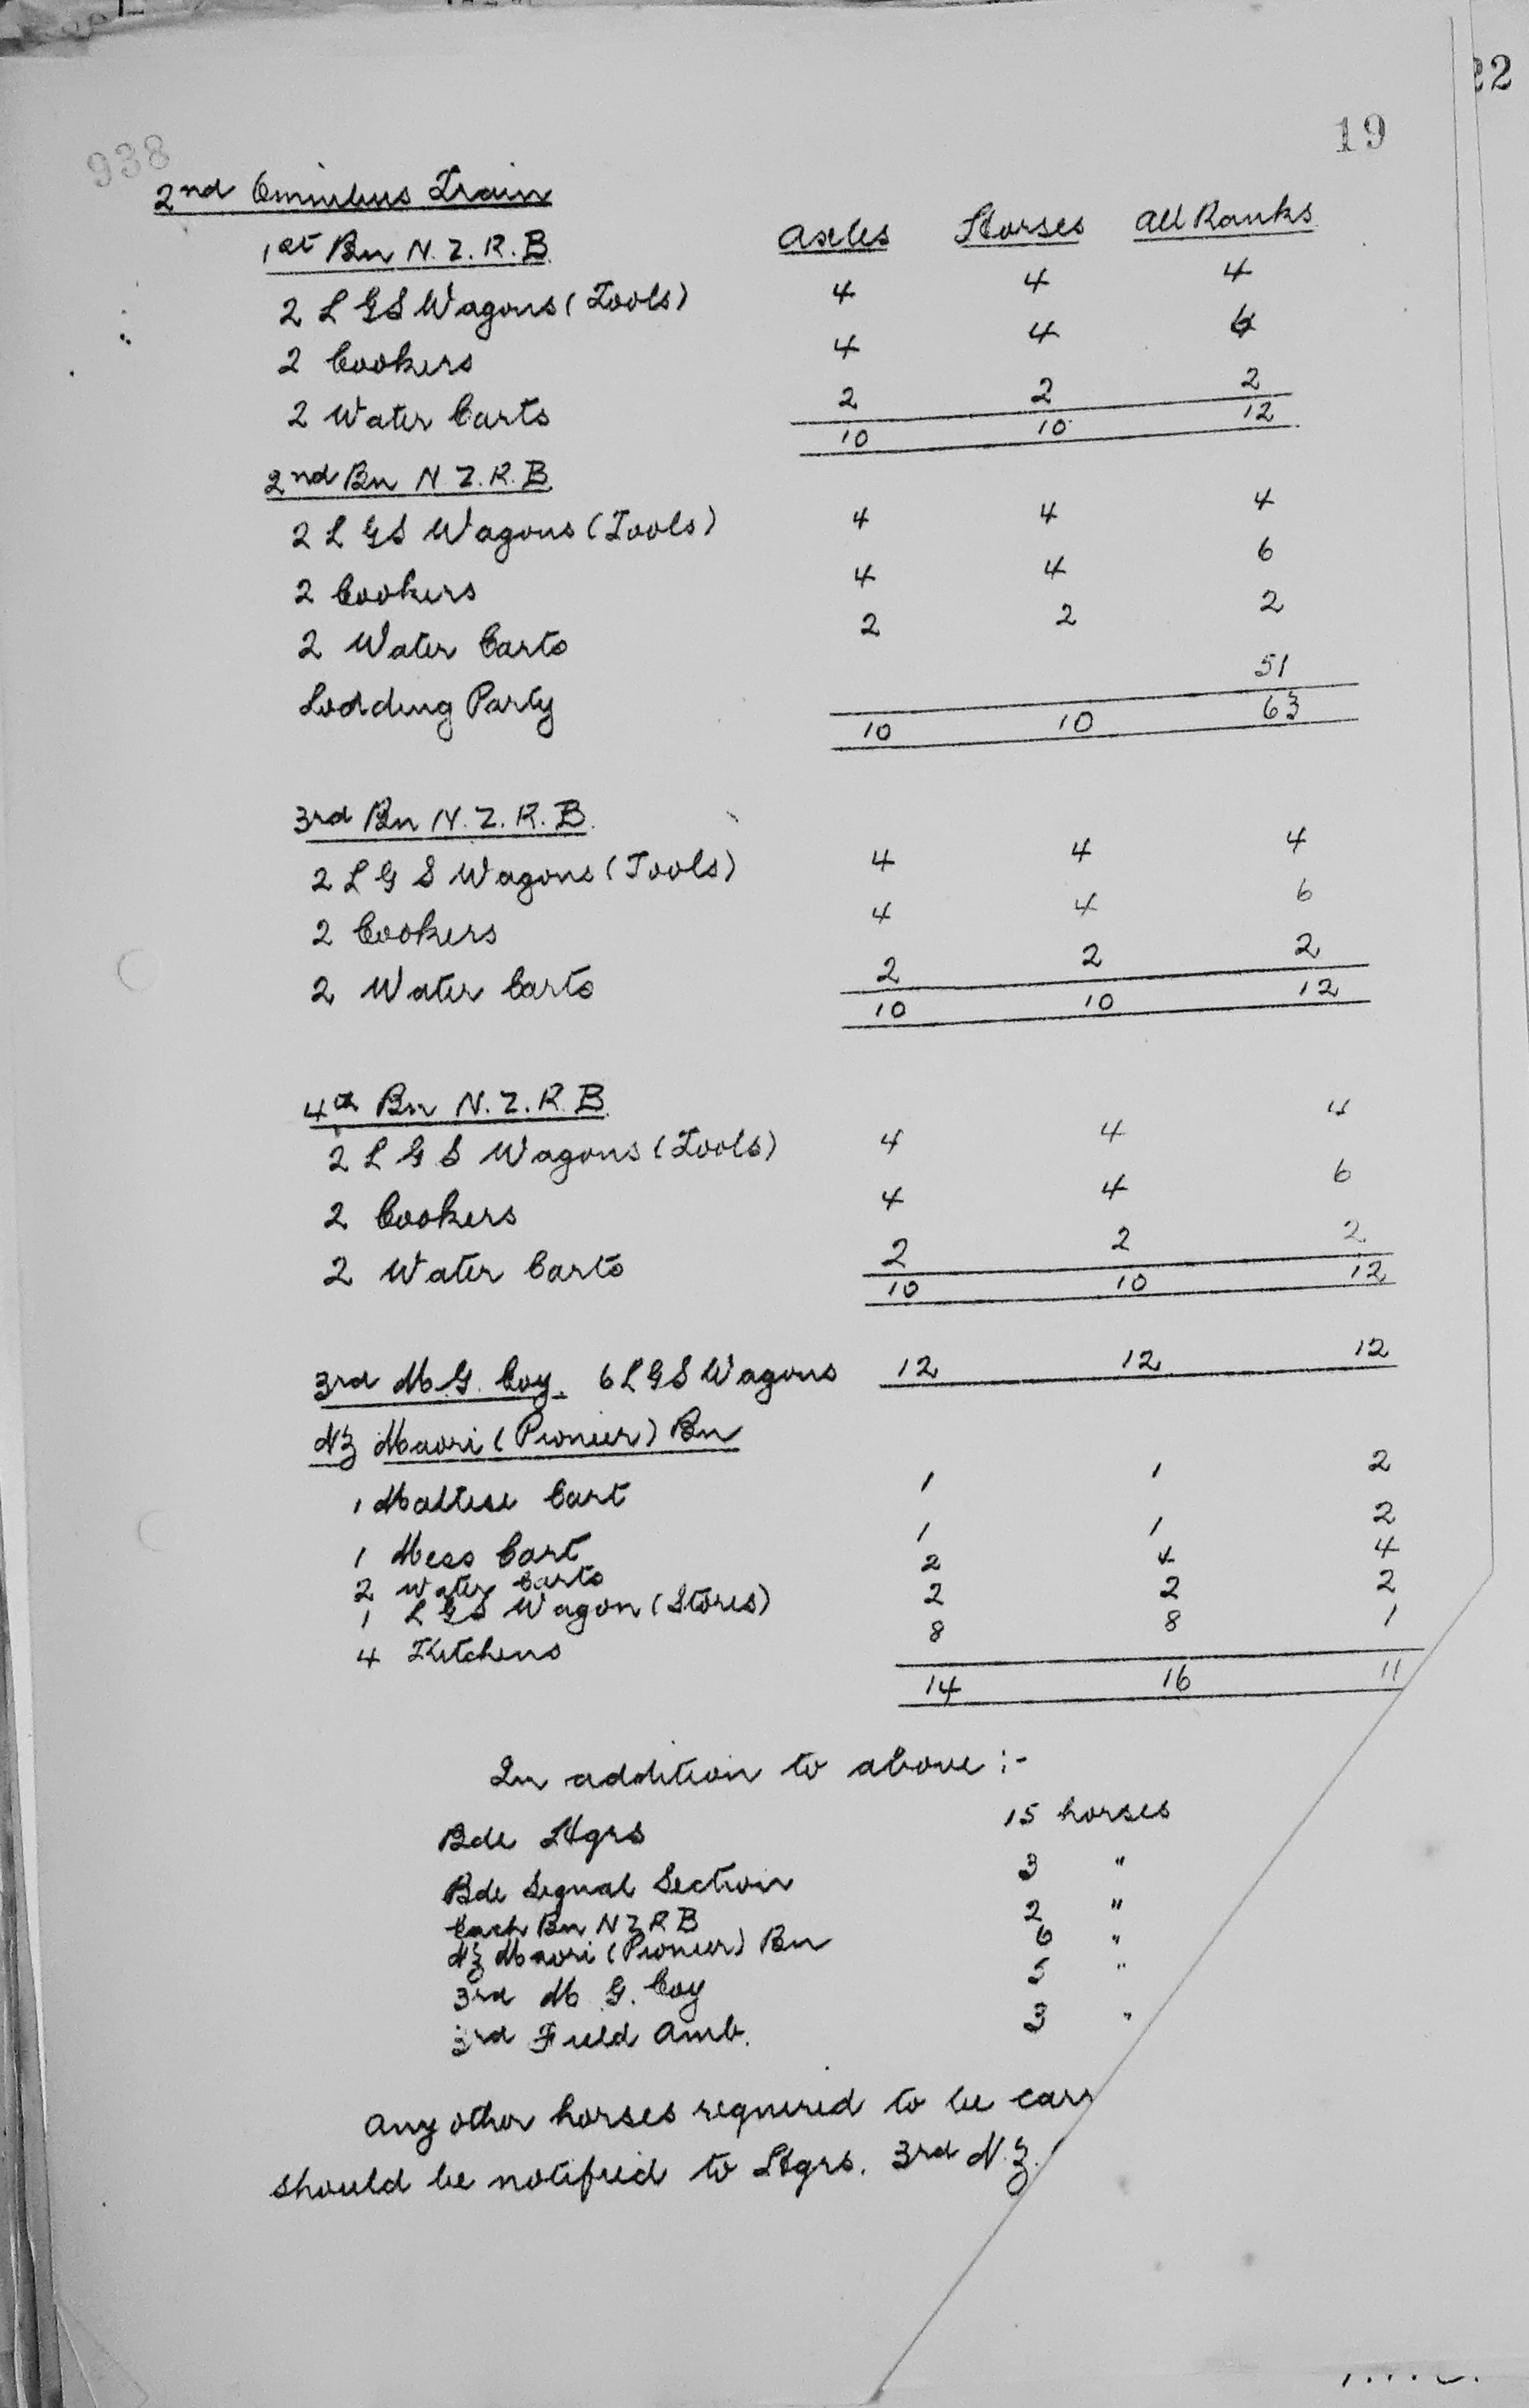 22
19
938
2nd Omnibus Train
Axles Horses All Ranks
1st Bn N.Z.R.B.
2 L G S Wagons (Tools) 4 4 4
2 Cookers 4 4 6
2 Water Carts 2 2 2
10 10 12
2nd Bn N Z.R.B.
2 L G S Wagons (Tools) 4 4 4
2 Cookers 4 4 6
2 Water Carts 2 2 2
Loading Party 51
10 10 63
3rd Bn N.Z.R.B.
2 L G S Wagons (Tools) 4 4 4
2 Cookers 4 4 6
2 Water Carts 2 2 2
10 10 12
4th Bn N.Z.R.B.
2 L G S Wagons (Tools) 4 4 4
2 Cookers 4 4 6
2 Water Carts 2 2 2
10 10 12
3rd M.G. Coy. 6 L G S Wagons 12 12 12
NZ Maori (Pioneer) Bn
1 Maltese Cart 1 1 2
1 Mess Cart 1 1 2
2 Water Carts 2 4 4
1 L G S Wagon (Stores) 2 2 2
4 Kitchens 8 8 1
14 16 11
In addition to above :-
Bde Hqrs 15 horses
Bde Signal Section 3 "
Each Bn N Z R B 2 "
NZ Maori (Pioneer) Bn 6 "
3rd M.G. Coy 5 "
3rd Field Amb. 3 "
Any other horses required to be carr
should be notified to Hqrs. 3rd N.Z.